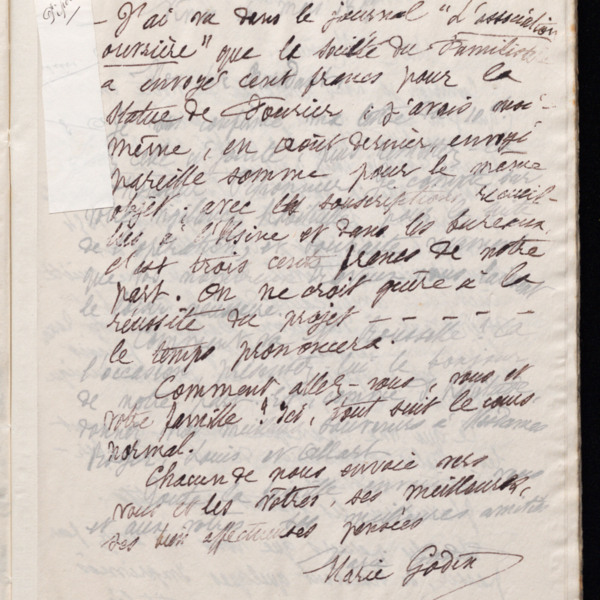 - J'ai vu dans le journal "L'association
ouvrière" que la société du Familistère
a envoyé cent francs pour la
statue de Fourier ; j'avais moi-
même, en août dernier, envoyé
pareille somme pour le même
objet ; avec les souscriptions recueil-
lies à l'Usine et dans les bureaux,
c'est trois cents francs de notre
part. On ne croit guère à la
réussite du projet - - - - -
le temps prononcera.
Comment allez-vous, vous et
votre famille ? Ici, tout suit le cours
normal.
Chacun de nous envoie vers
vous et les vôtres, ses meilleures,
ses bien affectueuses pensées
Marie Godin